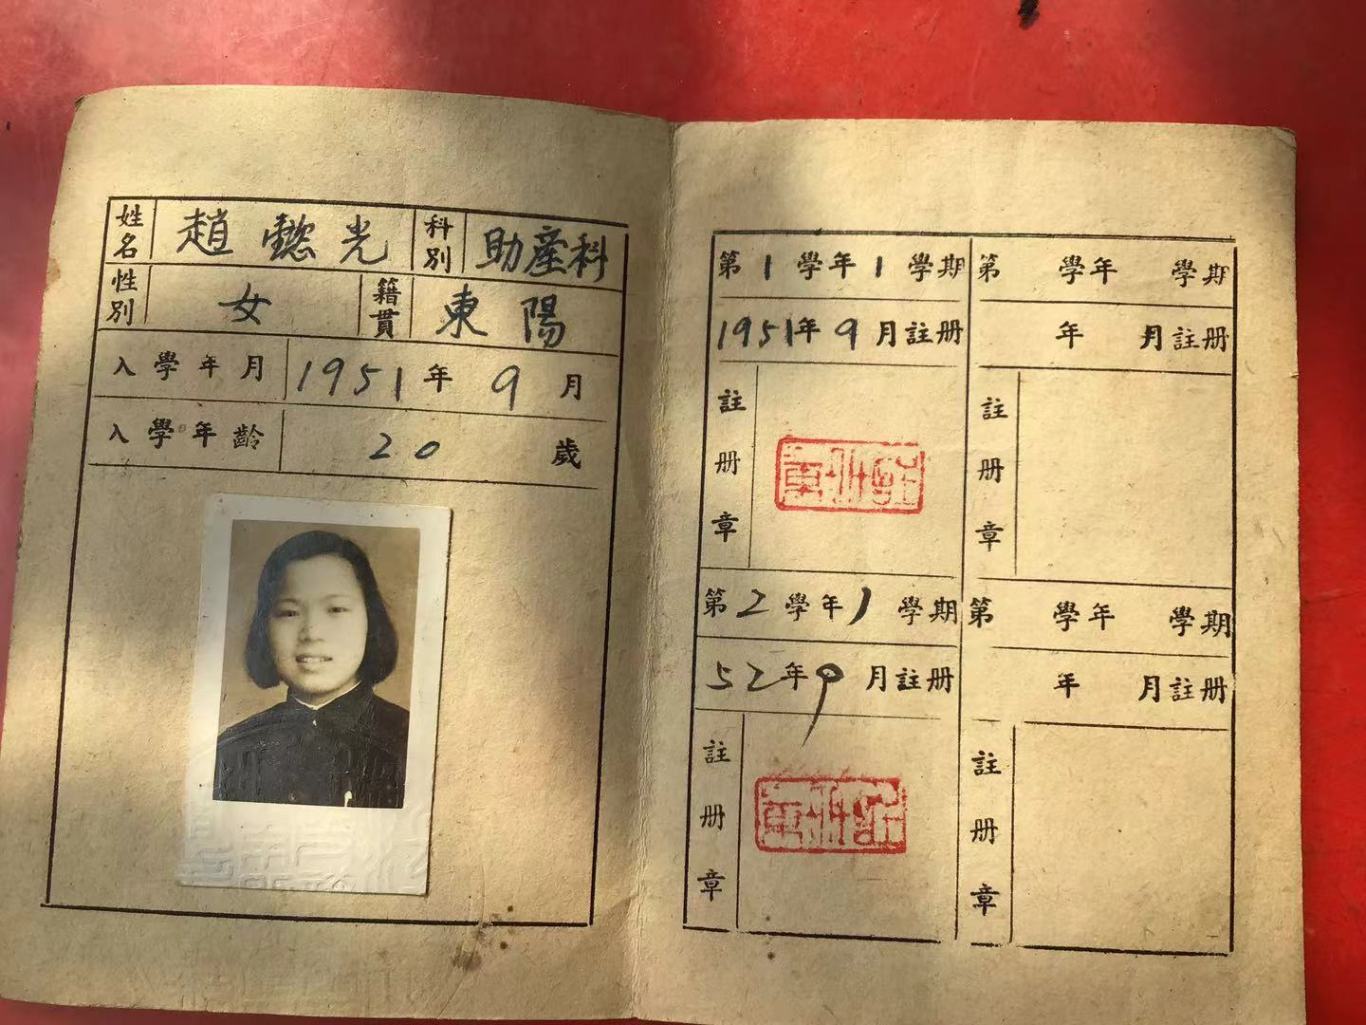 姓名 趙懿光 科別 助產科
性別 女 籍貫 東陽
入學年月 1951年9月
入學年齡 20歲
第1學年1學期
1951年9月註册
註册章
第2學年1學期
52年9月註册
註册章
第 學年 學期
年 月註册
註册章
第 學年 學期
年 月註册
註册章